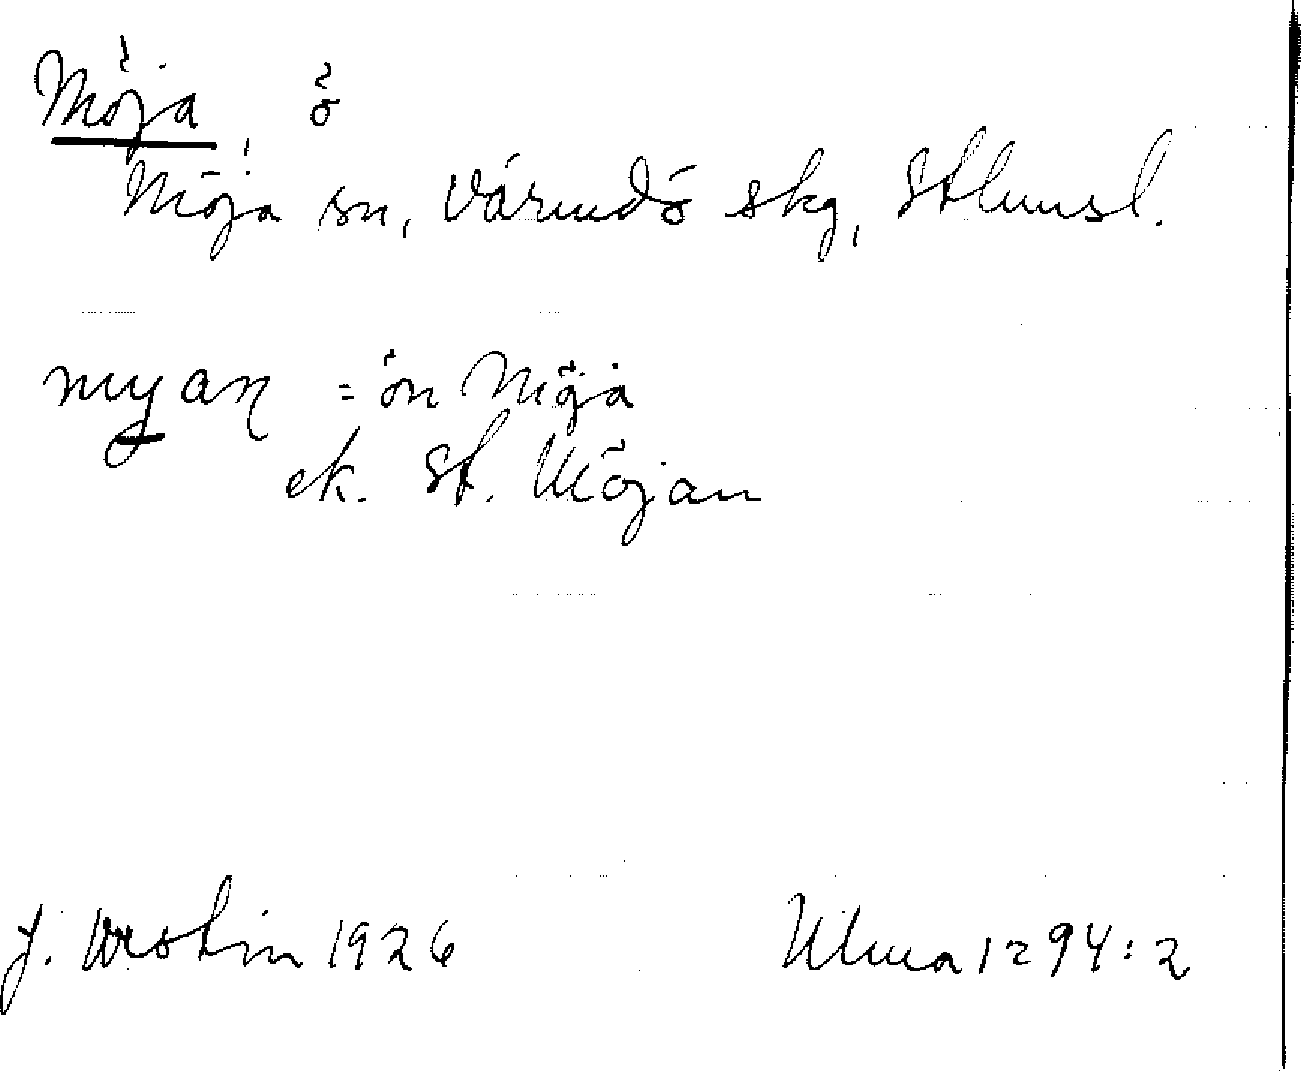 Möja ö
Möja sn, Värmdö skg, Sthmsl.
myan = ön Möja
ek. St. Möjan
J. Westin 1926 Ulma 1294:2